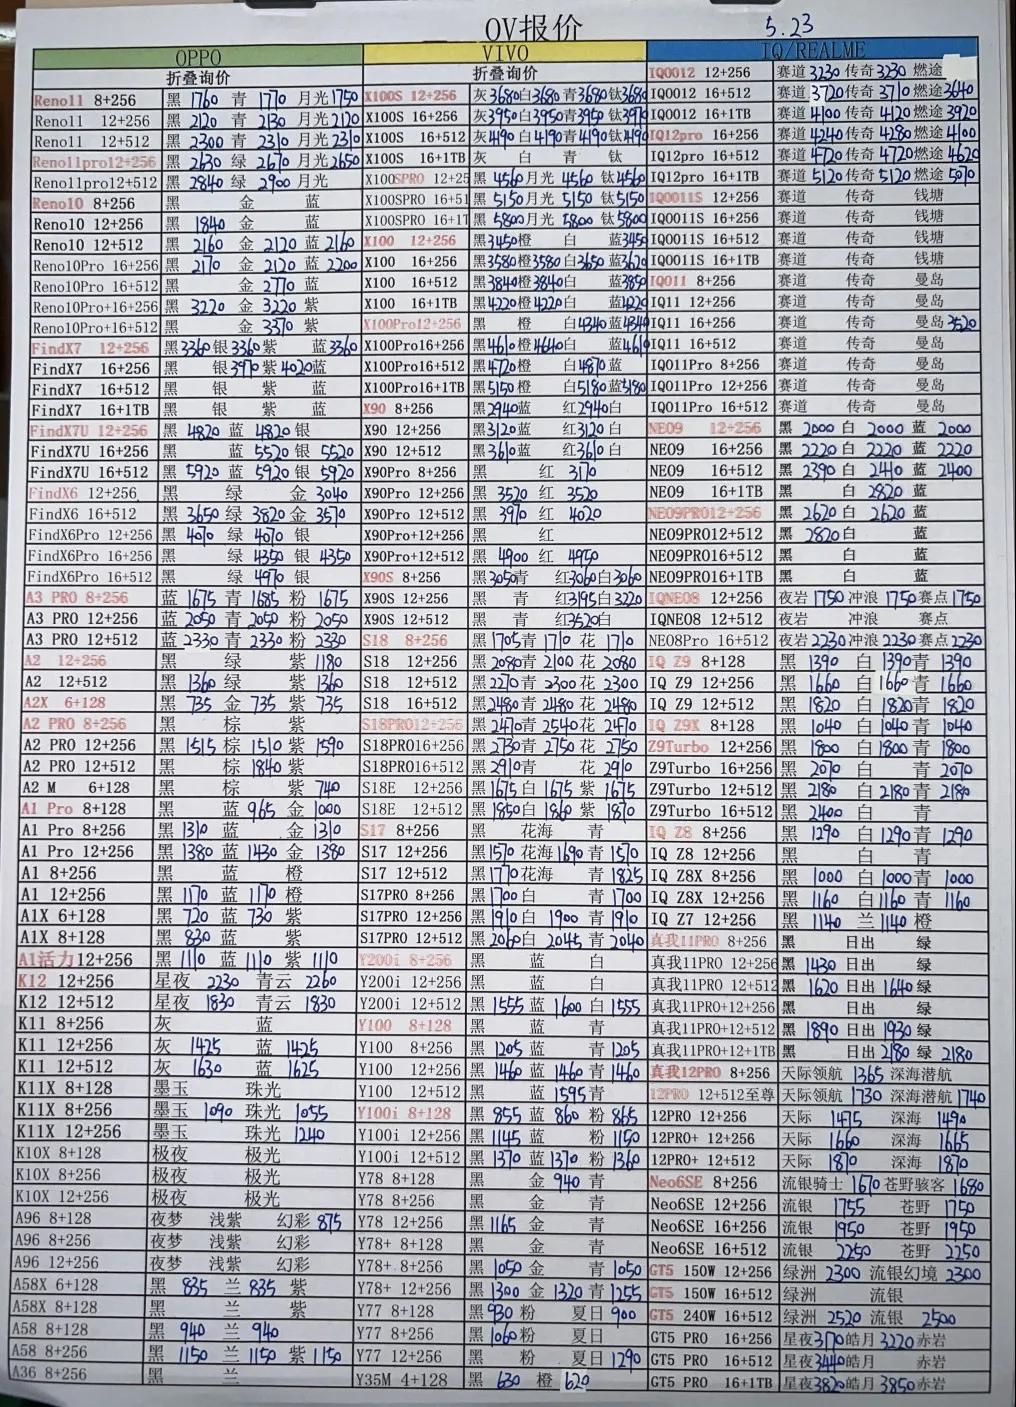 OV报价
5.23
OPPO
折叠询价
Reno11 8+256 黑 1760 青 1770 月光 1750
Reno11 12+256 黑 2120 青 2130 月光 2120
Reno11 12+512 黑 2300 青 2310 月光 2310
Reno11pro12+256 黑 2630 绿 2670 月光 2650
Reno11pro12+512 黑 2840 绿 2900 月光
Reno10 8+256 黑 金 蓝
Reno10 12+256 黑 1840 金 蓝
Reno10 12+512 黑 2160 金 2120 蓝 2160
Reno10Pro 16+256 黑 2170 金 2120 蓝 2200
Reno10Pro 16+512 黑 金 2770 蓝
Reno10Pro+16+256 黑 3220 金 3220 紫
Reno10Pro+16+512 黑 金 3370 紫
FindX7 12+256 黑 3360 银 3360 紫 蓝 3360
FindX7 16+256 黑 银 3970 紫 4020 蓝
FindX7 16+512 黑 银 紫 蓝
FindX7 16+1TB 黑 银 紫 蓝
FindX7U 12+256 黑 4820 蓝 4820 银
FindX7U 16+256 黑 蓝 5520 银 5520
FindX7U 16+512 黑 5920 蓝 5920 银 5920
FindX6 12+256 黑 绿 金 3040
FindX6 16+512 黑 3650 绿 3820 金 3570
FindX6Pro 12+256 黑 4070 绿 4070 银
FindX6Pro 16+256 黑 绿 4350 银 4350
FindX6Pro 16+512 黑 绿 4970 银
A3 PRO 8+256 蓝 1675 青 1685 粉 1675
A3 PRO 12+256 蓝 2050 青 2050 粉 2050
A3 PRO 12+512 蓝 2330 青 2330 粉 2330
A2 12+256 黑 绿 紫 1180
A2 12+512 黑 1360 绿 紫 1360
A2X 6+128 黑 735 金 735 紫 735
A2 PRO 8+256 黑 棕 紫
A2 PRO 12+256 黑 1515 棕 1510 紫 1590
A2 PRO 12+512 黑 棕 1840 紫
A2 M 6+128 黑 棕 紫 740
A1 Pro 8+128 黑 蓝 965 金 1000
A1 Pro 8+256 黑 1310 蓝 金 1310
A1 Pro 12+256 黑 1380 蓝 1430 金 1380
A1 8+256 黑 蓝 橙
A1 12+256 黑 1170 蓝 1170 橙
A1X 6+128 黑 720 蓝 730 紫
A1X 8+128 黑 830 蓝 紫
A1活力12+256 黑 1110 蓝 1110 紫 1110
K12 12+256 星夜 2230 青云 2260
K12 12+512 星夜 1830 青云 1830
K11 8+256 灰 蓝
K11 12+256 灰 1425 蓝 1425
K11 12+512 灰 1630 蓝 1625
K11X 8+128 墨玉 珠光
K11X 8+256 墨玉 1090 珠光 1055
K11X 12+256 墨玉 珠光 1240
K10X 8+128 极夜 极光
K10X 8+256 极夜 极光
K10X 12+256 极夜 极光
A96 8+128 夜梦 浅紫 幻彩 875
A96 8+256 夜梦 浅紫 幻彩
A96 12+256 夜梦 浅紫 幻彩
A58X 6+128 黑 835 兰 835 紫
A58X 8+128 黑 兰 紫
A58 8+128 黑 940 兰 940
A58 8+256 黑 1150 兰 1150 紫 1150
A36 8+256 黑 兰
VIVO
折叠询价
X100S 12+256 灰 3680 白 3680 青 3680 钛 3680
X100S 16+256 灰 3950 白 3950 青 3950 钛 3970
X100S 16+512 灰 4190 白 4190 青 4190 钛 4190
X100S 16+1TB 灰 白 青 钛
X100SPRO 12+25 黑 4560 月光 4560 钛 4560
X100SPRO 16+51 黑 5150 月光 5150 钛 5150
X100SPRO 16+1T 黑 5800 月光 5800 钛 5800
X100 12+256 黑 3450 橙 白 蓝 3450
X100 16+256 黑 3580 橙 3580 白 3650 蓝 3620
X100 16+512 黑 3840 橙 3840 白 蓝 3850
X100 16+1TB 黑 4220 橙 4220 白 蓝 4220
X100Pro12+256 黑 橙 白 4340 蓝 4340
X100Pro16+256 黑 4610 橙 4640 白 蓝 4610
X100Pro16+512 黑 4720 橙 白 4870 蓝
X100Pro16+1TB 黑 5150 橙 白 5180 蓝 5180
X90 8+256 黑 2940 蓝 红 2940 白
X90 12+256 黑 3120 蓝 红 3120 白
X90 12+512 黑 3610 蓝 红 3610 白
X90Pro 8+256 黑 红 3170
X90Pro 12+256 黑 3520 红 3520
X90Pro 12+512 黑 3970 红 4020
X90Pro+12+256 黑 红
X90Pro+12+512 黑 4900 红 4950
X90S 8+256 黑 3050 青 红 3060 白 3060
X90S 12+256 黑 青 红 3195 白 3220
X90S 12+512 黑 青 红 3520 白
S18 8+256 黑 1705 青 1710 花 1710
S18 12+256 黑 2080 青 2100 花 2080
S18 12+512 黑 2270 青 2300 花 2300
S18 16+512 黑 2480 青 2480 花 2480
S18PRO12+256 黑 2470 青 2540 花 2470
S18PRO16+256 黑 2730 青 2750 花 2750
S18PRO16+512 黑 2910 青 花 2910
S18E 12+256 黑 1675 白 1675 紫 1675
S18E 12+512 黑 1850 白 1860 紫 1870
S17 8+256 黑 花海 青
S17 12+256 黑 1570 花海 1690 青 1570
S17 12+512 黑 1770 花海 青 1825
S17PRO 8+256 黑 1700 白 青 1700
S17PRO 12+256 黑 1910 白 1900 青 1910
S17PRO 12+512 黑 2060 白 2045 青 2040
Y200i 8+256 黑 蓝 白
Y200i 12+256 黑 蓝 白
Y200i 12+512 黑 1555 蓝 1600 白 1555
Y100 8+128 黑 蓝 青
Y100 8+256 黑 1205 蓝 青 1205
Y100 12+256 黑 1460 蓝 1460 青 1460
Y100 12+512 黑 蓝 1595 青
Y100i 8+128 黑 855 蓝 860 粉 865
Y100i 12+256 黑 1145 蓝 粉 1150
Y100i 12+512 黑 1370 蓝 1370 粉 1360
Y78 8+128 黑 金 940 青
Y78 8+256 黑 金 青
Y78 12+256 黑 1165 金 青
Y78+ 8+128 黑 金 青
Y78+ 8+256 黑 1050 金 青 1050
Y78+ 12+256 黑 1300 金 1320 青 1255
Y77 8+128 黑 930 粉 夏日 900
Y77 8+256 黑 1060 粉 夏日
Y77 12+256 黑 粉 夏日 1290
Y35M 4+128 黑 630 橙 620
IQ/REALME
IQOO12 12+256 赛道 3230 传奇 3230 燃途
IQOO12 16+512 赛道 3720 传奇 3710 燃途 3640
IQOO12 16+1TB 赛道 4100 传奇 4120 燃途 3920
IQ12pro 16+256 赛道 4240 传奇 4280 燃途 4100
IQ12pro 16+512 赛道 4720 传奇 4720 燃途 4620
IQ12pro 16+1TB 赛道 5120 传奇 5120 燃途 5070
IQOO11S 12+256 赛道 传奇 钱塘
IQOO11S 16+256 赛道 传奇 钱塘
IQOO11S 16+512 赛道 传奇 钱塘
IQOO11S 16+1TB 赛道 传奇 钱塘
IQO11 8+256 赛道 传奇 曼岛
IQ11 12+256 赛道 传奇 曼岛
IQ11 16+256 赛道 传奇 曼岛 3520
IQ11 16+512 赛道 传奇 曼岛
IQO11Pro 8+256 赛道 传奇 曼岛
IQO11Pro 12+256 赛道 传奇 曼岛
IQO11Pro 16+512 赛道 传奇 曼岛
NEO9 12+256 黑 2000 白 2000 蓝 2000
NEO9 16+256 黑 2220 白 2220 蓝 2220
NEO9 16+512 黑 2390 白 2410 蓝 2400
NEO9 16+1TB 黑 白 2820 蓝
NEO9PRO12+256 黑 2620 白 2620 蓝
NEO9PRO12+512 黑 2820 白 蓝
NEO9PRO16+512 黑 白 蓝
NEO9PRO16+1TB 黑 白 蓝
IQNEO8 12+256 夜岩 1750 冲浪 1750 赛点 1750
IQNEO8 12+512 夜岩 冲浪 赛点
NEO8Pro 16+512 夜岩 2230 冲浪 2230 赛点 2230
IQ Z9 8+128 黑 1390 白 1390 青 1390
IQ Z9 12+256 黑 1660 白 1660 青 1660
IQ Z9 12+512 黑 1820 白 1820 青 1820
IQ Z9X 8+128 黑 1040 白 1040 青 1040
Z9Turbo 12+256 黑 1800 白 1800 青 1800
Z9Turbo 16+256 黑 2070 白 青 2070
Z9Turbo 12+512 黑 2180 白 2180 青 2180
Z9Turbo 16+512 黑 2400 白 青
IQ Z8 8+256 黑 1290 白 1290 青 1290
IQ Z8 12+256 黑 白 青
IQ Z8X 8+256 黑 1000 白 1000 青 1000
IQ Z8X 12+256 黑 1160 白 1160 青 1160
IQ Z7 12+256 黑 1140 兰 1140 橙
真我11PRO 8+256 黑 日出 绿
真我11PRO 12+256 黑 1430 日出 绿
真我11PRO 12+512 黑 1620 日出 1640 绿
真我11PRO+12+256 黑 日出 绿
真我11PRO+12+512 黑 1890 日出 1930 绿
真我11PRO+12+1TB 黑 日出 2180 绿 2180
真我12PRO 8+256 天际领航 1365 深海潜航
12PRO 12+512至尊 天际领航 1730 深海潜航 1740
12PRO 12+256 天际 1475 深海 1490
12PRO+ 12+256 天际 1660 深海 1665
12PRO+ 12+512 天际 1870 深海 1870
Neo6SE 8+256 流银骑士 1670 苍野骇客 1680
Neo6SE 12+256 流银 1755 苍野 1750
Neo6SE 16+256 流银 1950 苍野 1950
Neo6SE 16+512 流银 2250 苍野 2250
GT5 150W 12+256 绿洲 2300 流银幻境 2300
GT5 150W 16+512 绿洲 流银
GT5 240W 16+512 绿洲 2520 流银 2500
GT5 PRO 16+256 星夜 3170 皓月 3220 赤岩
GT5 PRO 16+512 星夜 3440 皓月 赤岩
GT5 PRO 16+1TB 星夜 3820 皓月 3850 赤岩